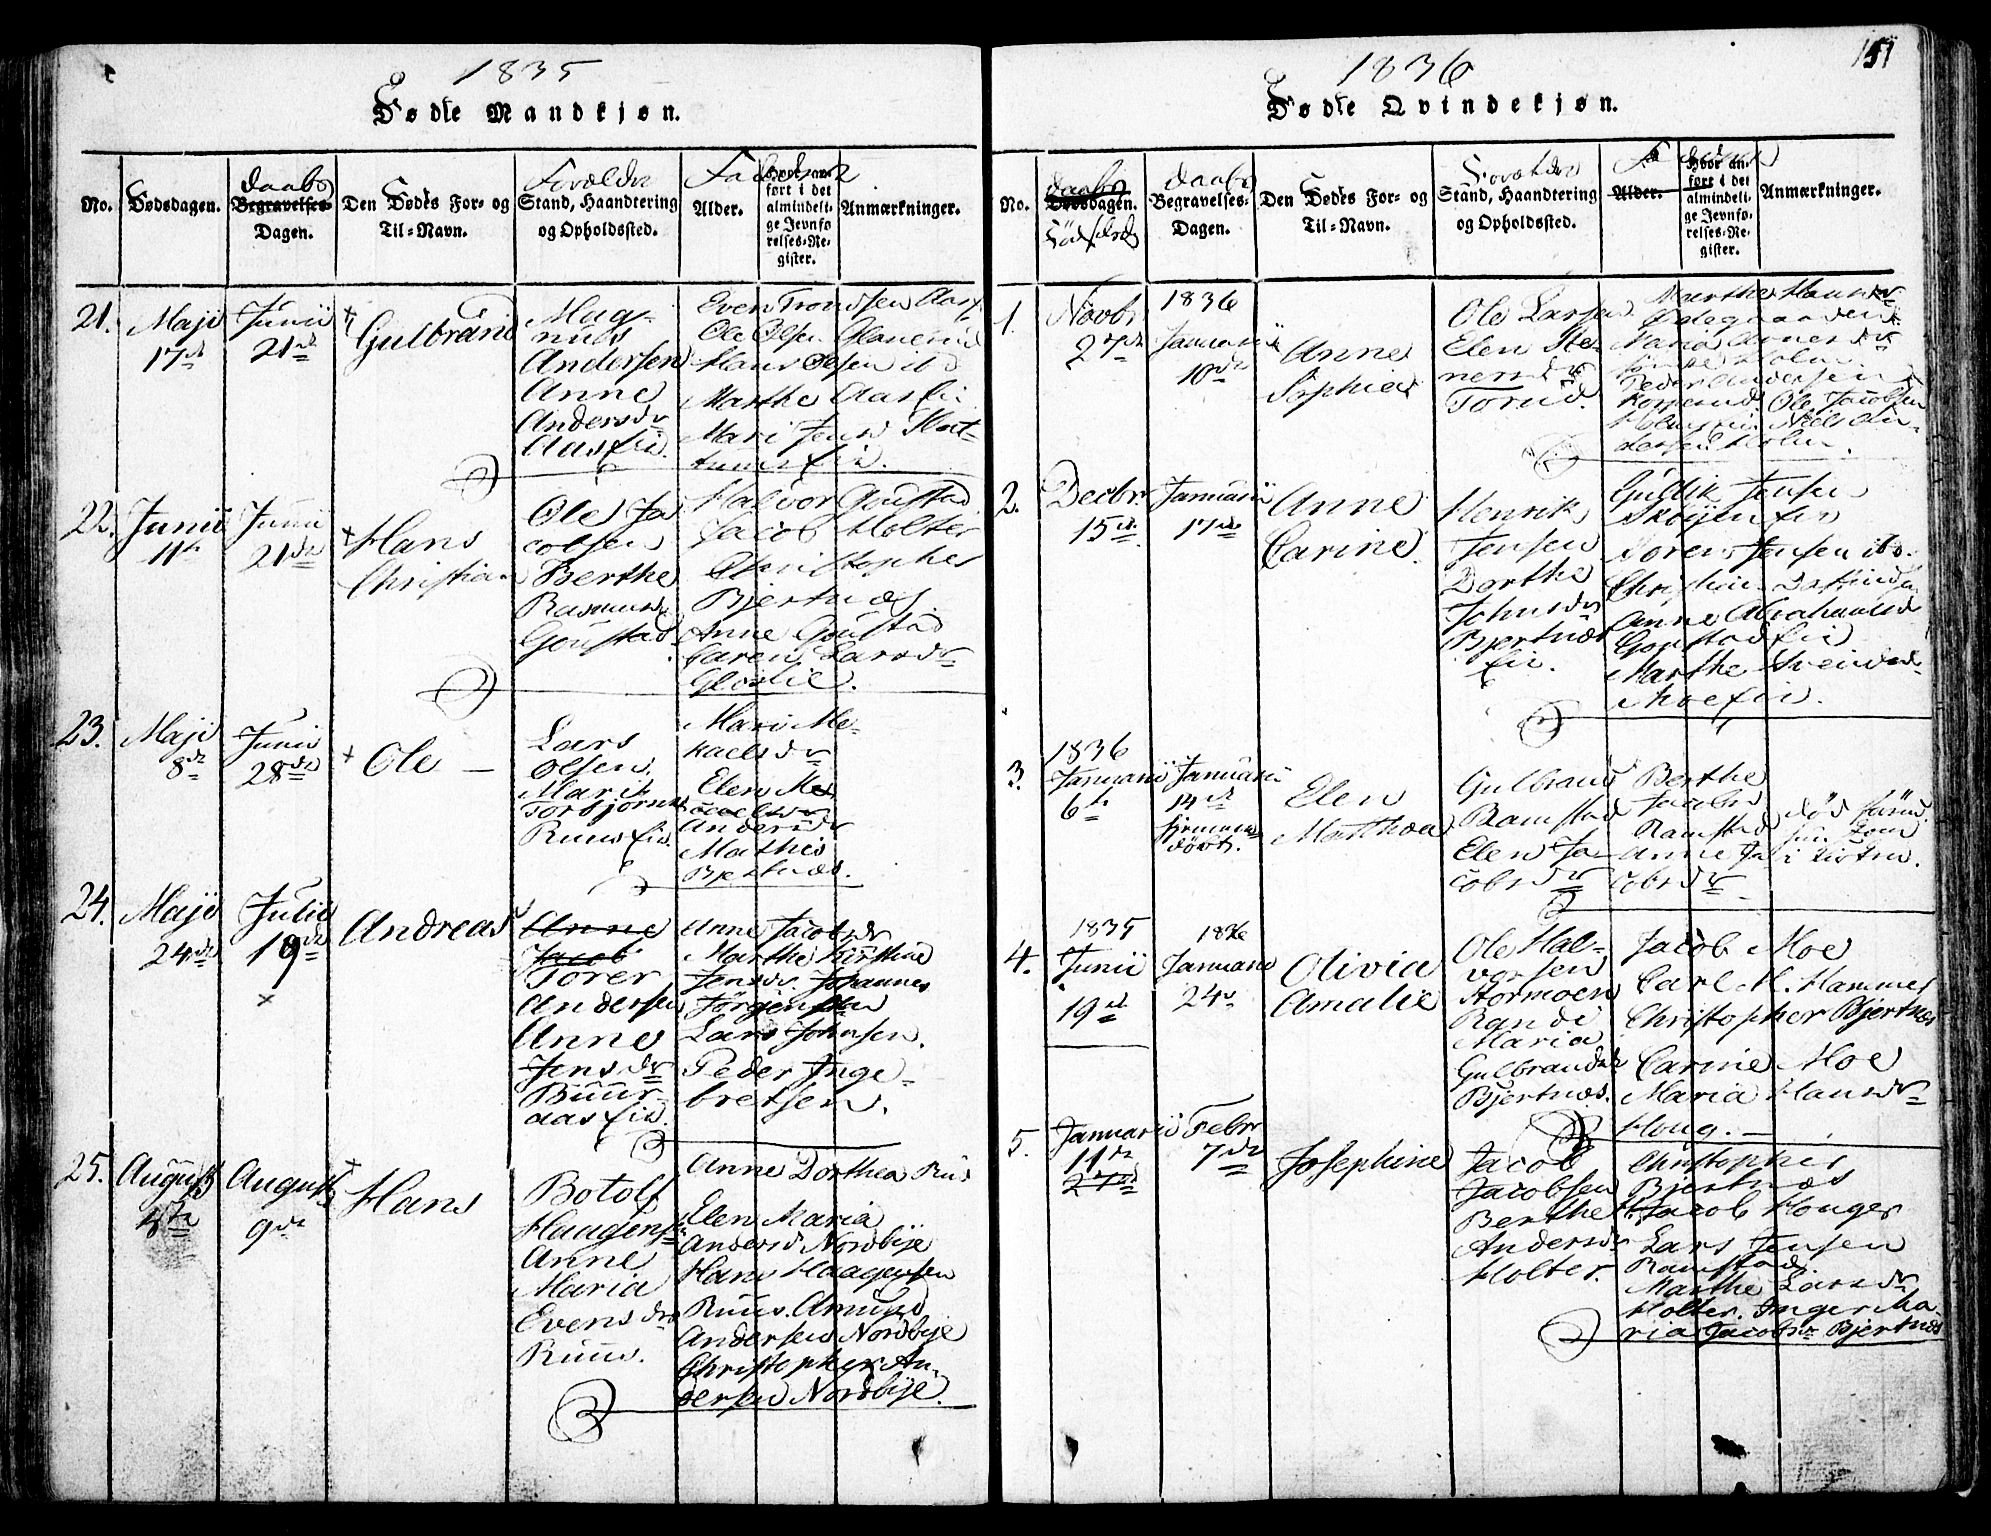 1835
Fødte Mandkjøn.
No.
Dødsdagen.
Daabs
Begravelses-
Dagen.
Den Fødtes For- og
Til-Navn.
Forældre
Stand, Haandtering
og Opholdssted.
Faddere
Alder.
Hvor an-
ført i det
almindeli-
ge Jevnfø
relses-Re-
gister.
Anmærkninger.
21.
Maji
17de
Junii
21de
Gulbrand
Mag-
nus
Andersen
Anne
Andersdr
Aasein
Even Trondsen Aas
Ole Olsen
Hans Olsen ibd
Marthe Aasein
Mari Jens
22.
Junii
11te
Junii
21de
Hans
Christian
Ole Ja
cobsen
Berthe
Rasmusd
Goustad
Halvor Goustad
Jacob Holter
Christopher
Bjertnæs
Anne Goustad
Caren Larsdr
Glorlie.
23.
Maji
8de
Junii
28de
Ole —
Lars
Olsen
Marit
Torbjørns
Ruus ein
Mari Me-
kaelsdr
Elen Me
Andersdr
Mathis
Bjertnæs.
24.
Maji
24de
Julii
19de
Andreas
Anne
Jacob
Torer
Andersen
Anne
Jensdr
Buur-
aas ein
Anne Jacobsdr
Marthe Kirstine
Jensdr. Johannes
Jørgensen
Lars Johnsen.
Peder Inge-
bretsen.
25.
August
August
9de
Hans
Botolf
Haagens
Anne
Maria
Evensdr
Ruus.
Anne Dorthea Ruus
Elen Maria
Andersd Nordbye
Hans Haagensen
Ruus. Amund
Andersen Nordbye
Christopher An-
dersen Nordbye.
151
1836
Fødte Qvindekjøn.
No.
Daabs
Dødsdagen.
Fødselsd
Daabs
Begravelses-
Dagen.
Den Fødtes For- og
Til-Navn.
Forældre
Stand, Haandtering
og Opholdssted.
Alder.
Hvor an-
ført i det
almindeli-
ge Jevnfø-
relses-Re-
gister.
Anmærkninger.
1.
Novbr
27de
1836
Januarii
10de
Anne
Sophie
Ole Larsen
Elen Ste-
nersdr
Torud.
Marthe Hansdr
Ødegaarden
Peder Andersen
Ole Jacobsen
Niels An-
dersen Holm.
2.
Decbr
15de
Januarii
17de
Anne
Carine.
Henrik
Jensen
Dorthe
Johnsdr
Bjertnæs
ein.
Gudlik Jensen
Skøyen ein
Søren Jensen ibd.
Anne Abrahamsd
Goustad ein
Marthe Svendsd
Moe ein.
3.
1836
Januarii
6te
Januarii
14de
hjemme-
døbt.
Elen
Matthea
Gulbrand
Ramstad
Elen Ja-
cobsdr
Berthe
Jacobs
Ramstad
Anne Ja
cobsdr
død
4.
1835
Junii
19de
1836
Januarii
24de
Olivia
Amalie
Ole Hal-
vorsen
Stormoen
Rande
Maria
Gulbrandsd
Bjertnæs.
Jacob Moe
Carl M. Hammer
Christopher Bjertnæs
Carine Moe
Maria Hansdr
Houg. —
5.
Januarii
11te
27de
Febr
7de
Josephine
Jacob
Jacobsen
Berthe
Andersdr
Holter.
Christopher
Bjertnæs
Jacob Houger
Lars Jensen
Ramstad
Marthe Larsdr
Holter. Inger Ma-
ria Jacobsdr Bjertnæs